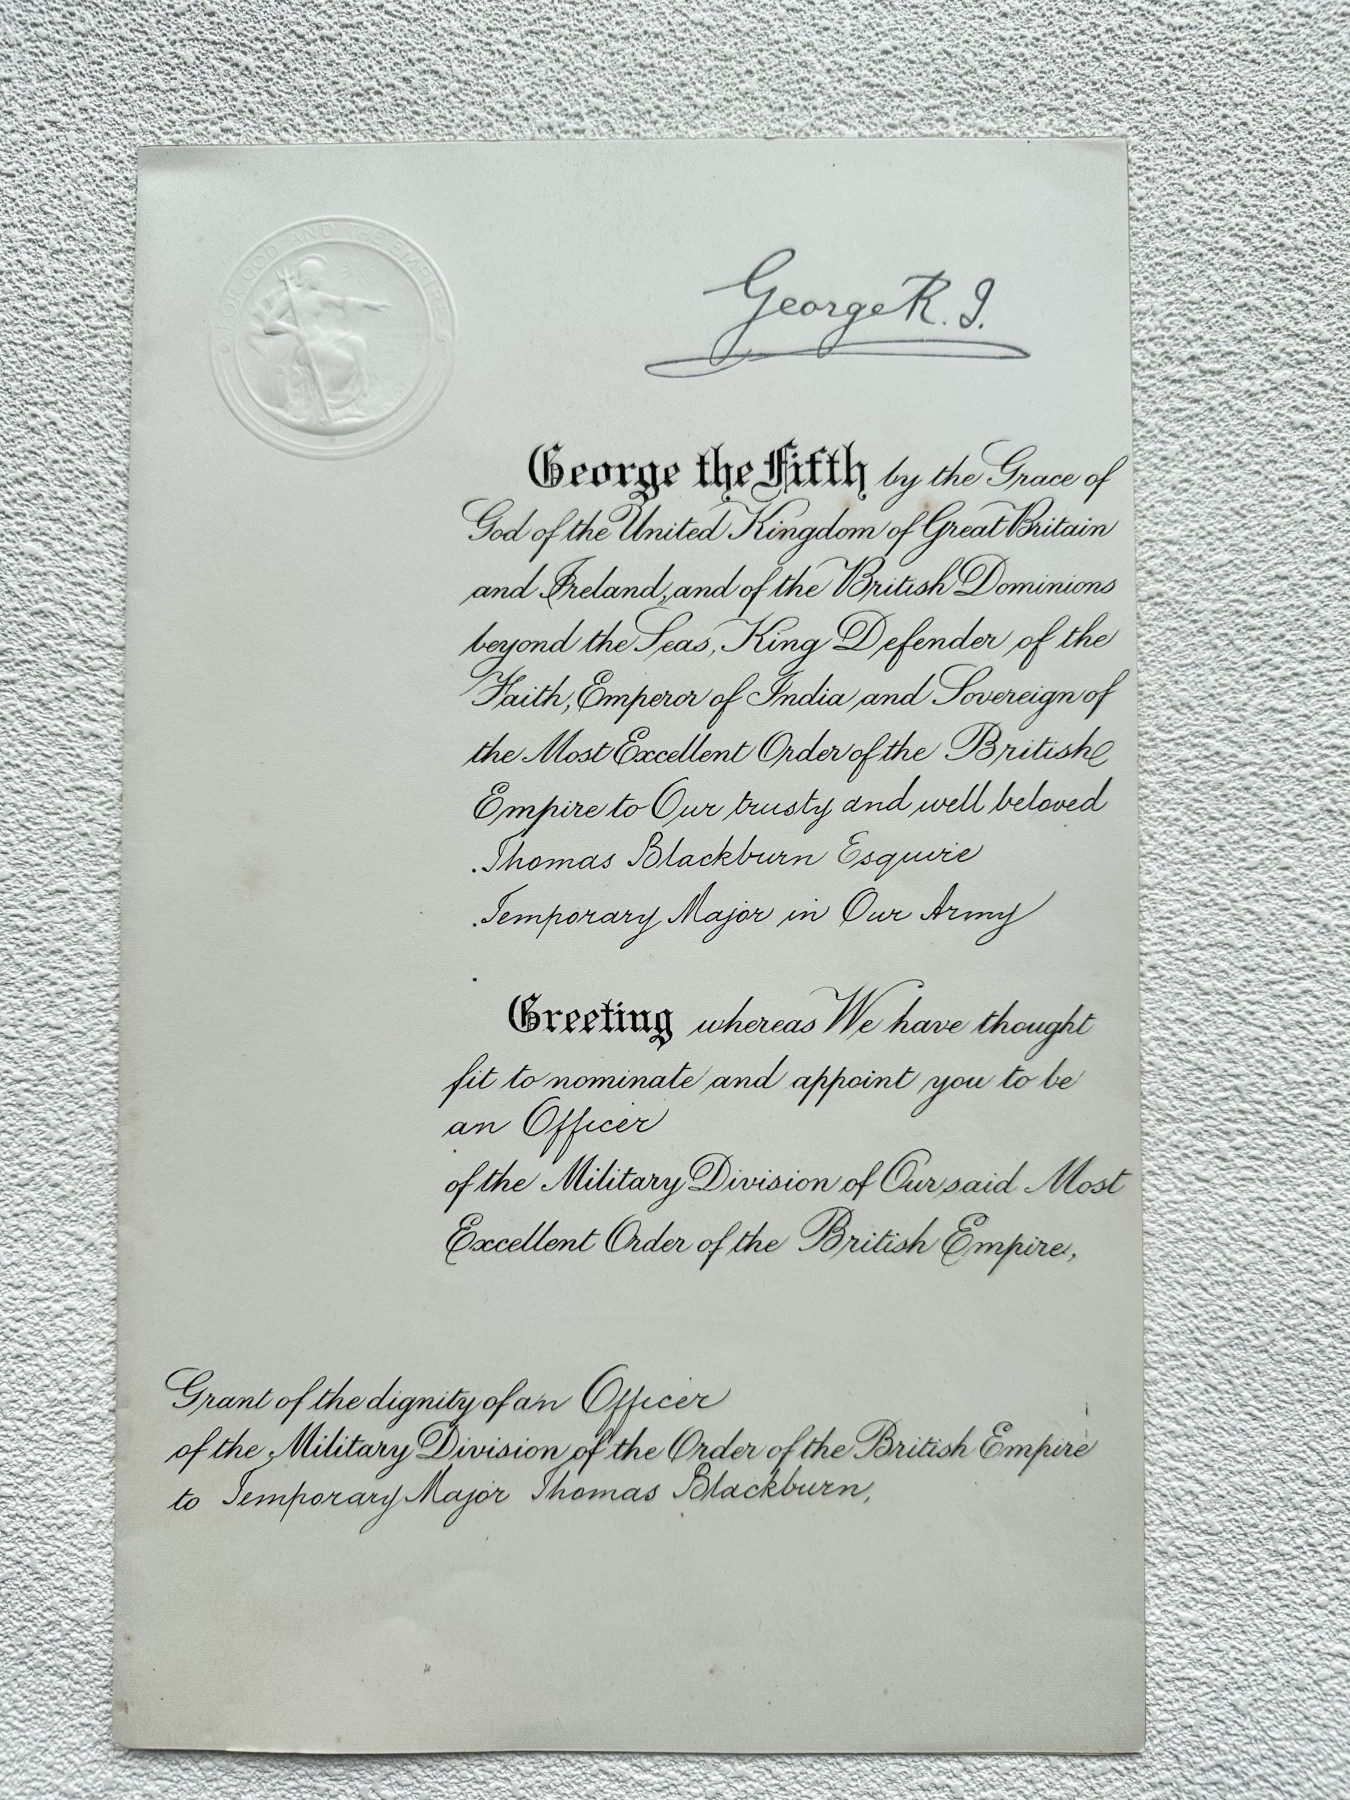 FOR GOD AND THE EMPIRE
George R. I.
George the Fifth by the Grace of
God of the United Kingdom of Great Britain
and Ireland, and of the British Dominions
beyond the Seas, King Defender of the
Faith, Emperor of India and Sovereign of
the Most Excellent Order of the British
Empire to Our trusty and well beloved
Thomas Blackburn Esquire
Temporary Major in Our Army
Greeting whereas We have thought
fit to nominate and appoint you to be
an Officer
of the Military Division of Our said Most
Excellent Order of the British Empire,
Grant of the dignity of an Officer
of the Military Division of the Order of the British Empire
to Temporary Major Thomas Blackburn,